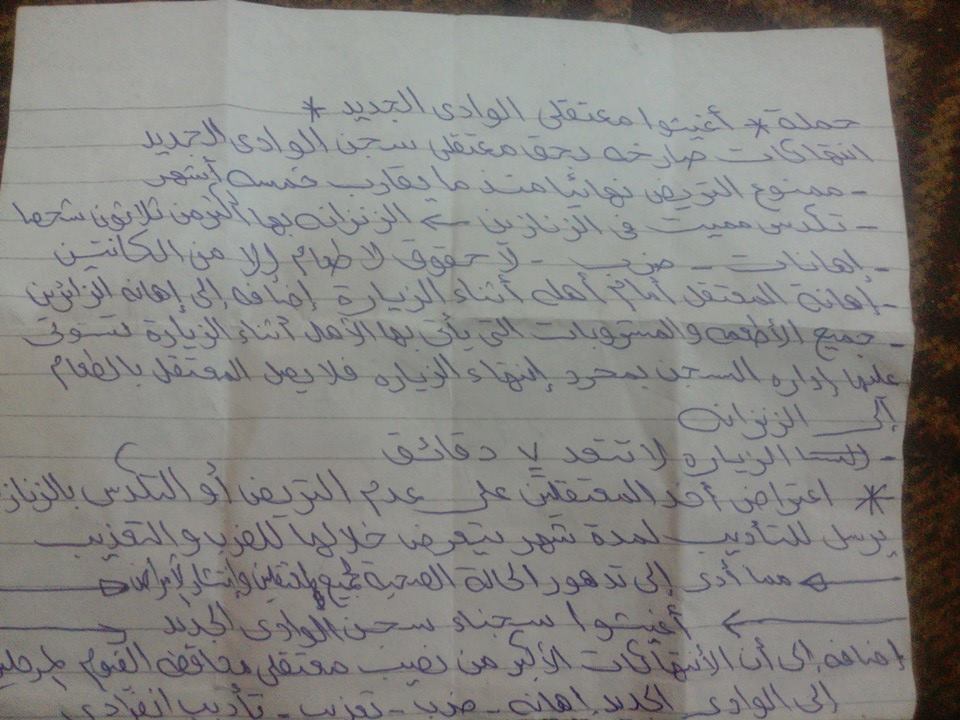 حملة * أغيثوا معتقلى الوادى الجديد *
انتهاكات صارخه بحق معتقلى سجن الوادى الجديد
- ممنوع التريض نهائيًا منذ ما يقارب خمسه أشهر
- تكدس مميت فى الزنازين ← الزنزانه بها أكثر من ثلاثون شخصا
- إهانات - ضرب - لا حقوق لا طعام إلا من الكانتين
- إهانة المعتقل أمام أهله أثناء الزيارة إضافه إلى إهانه الزائرين
- جميع الأطعمه والمشروبات التى يأتى بها الأهل أثناء الزيارة تستولى
عليها إداره السجن بمجرد إنتهاء الزياره فلا يصل المعتقل بالطعام
إلى الزنزانه
- الزياره لا تتعد ٧ دقائق
* اعتراض أحد المعتقلين على عدم التريض أو التكدس بالزناز
يرسل للتأديب لمدة شهر يتعرض خلالها للضرب والتعذيب
مما أدى إلى تدهور الحالة الصحية لجميع المعتقلين وإنتشار الأمراض
أغيثوا سجناء سجن الوادى الجديد
إضافه إلى أن الأنتهاكات الأكبر من نصيب معتقلى محافظه الفيوم المرحلين
إلى الوادى الجديد إهانه - ضرب - تعذيب - تأديب انفرادى